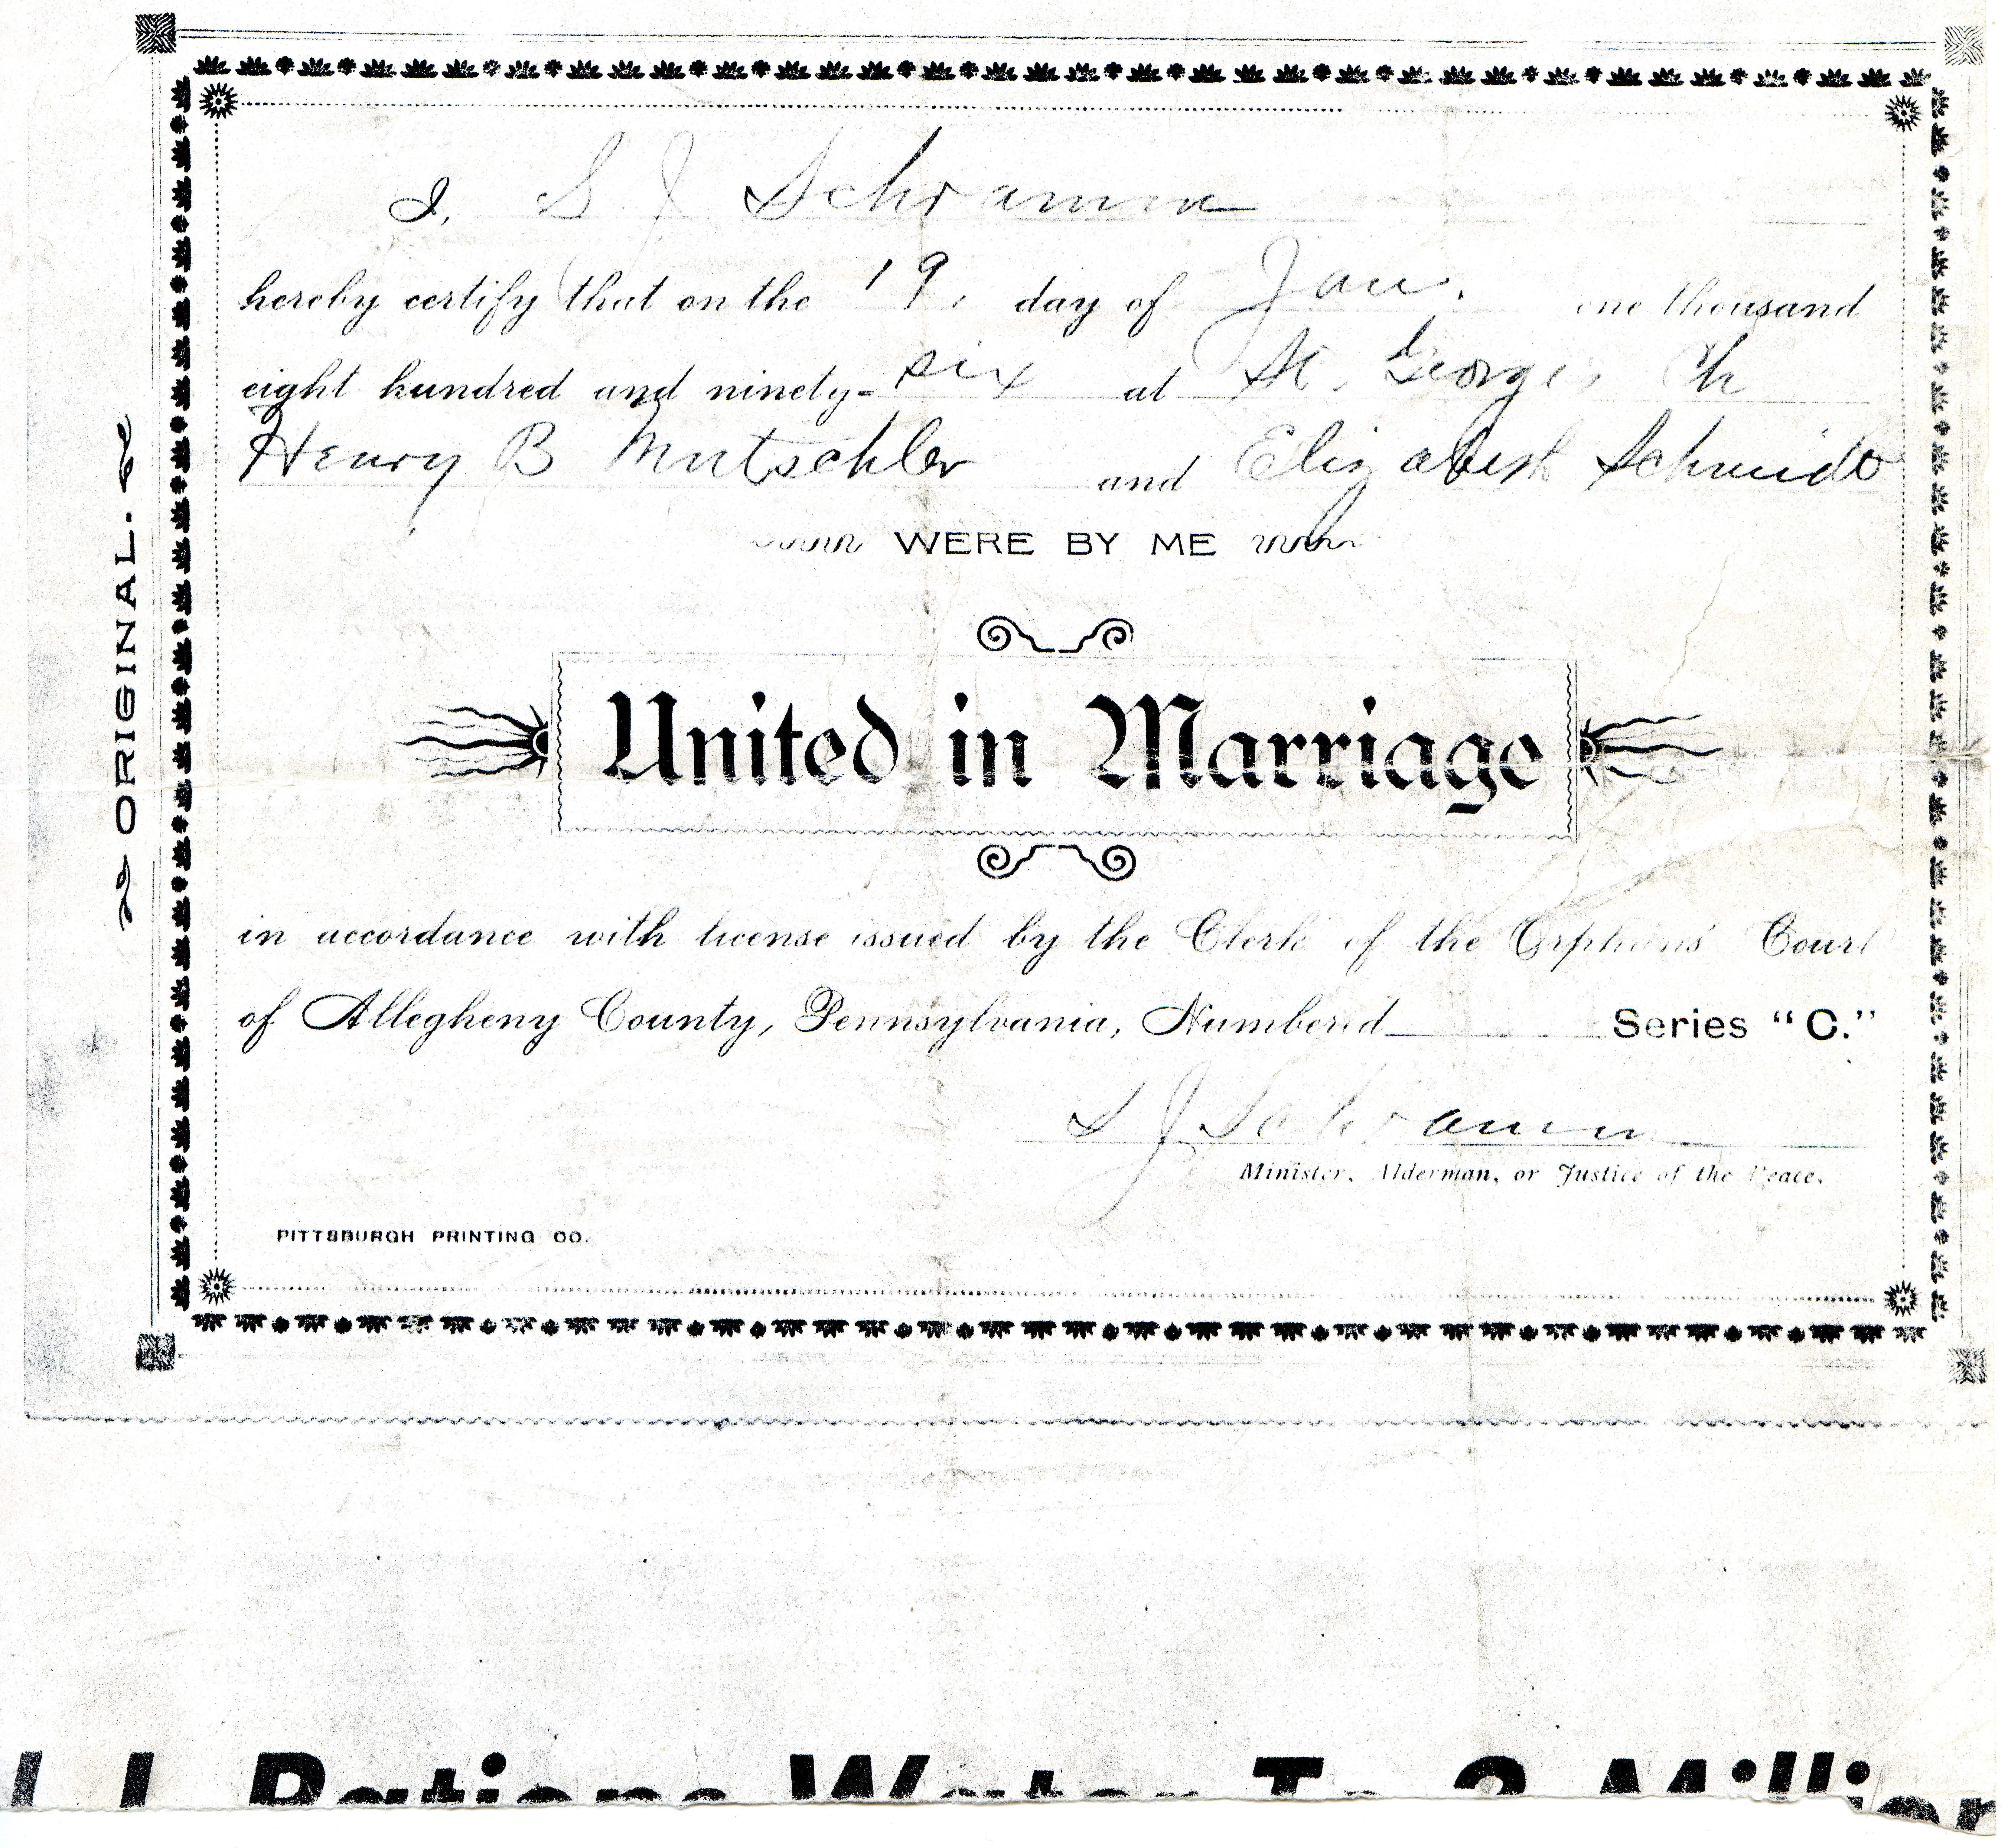 I, S. J. Schramm
hereby certify that on the 19. day of Jan. one thousand
eight hundred and ninety-six at St. Georges Ch
Henry B Mutschler and Elizabeth Schmidt
WERE BY ME
United in Marriage
in accordance with license issued by the Clerk of the Orphans' Court
of Allegheny County, Pennsylvania, Numbered Series "C."
S J Schramm
Minister, Alderman, or Justice of the Peace.
PITTSBURGH PRINTING CO.
ORIGINAL.
Rations Water To 2 Million